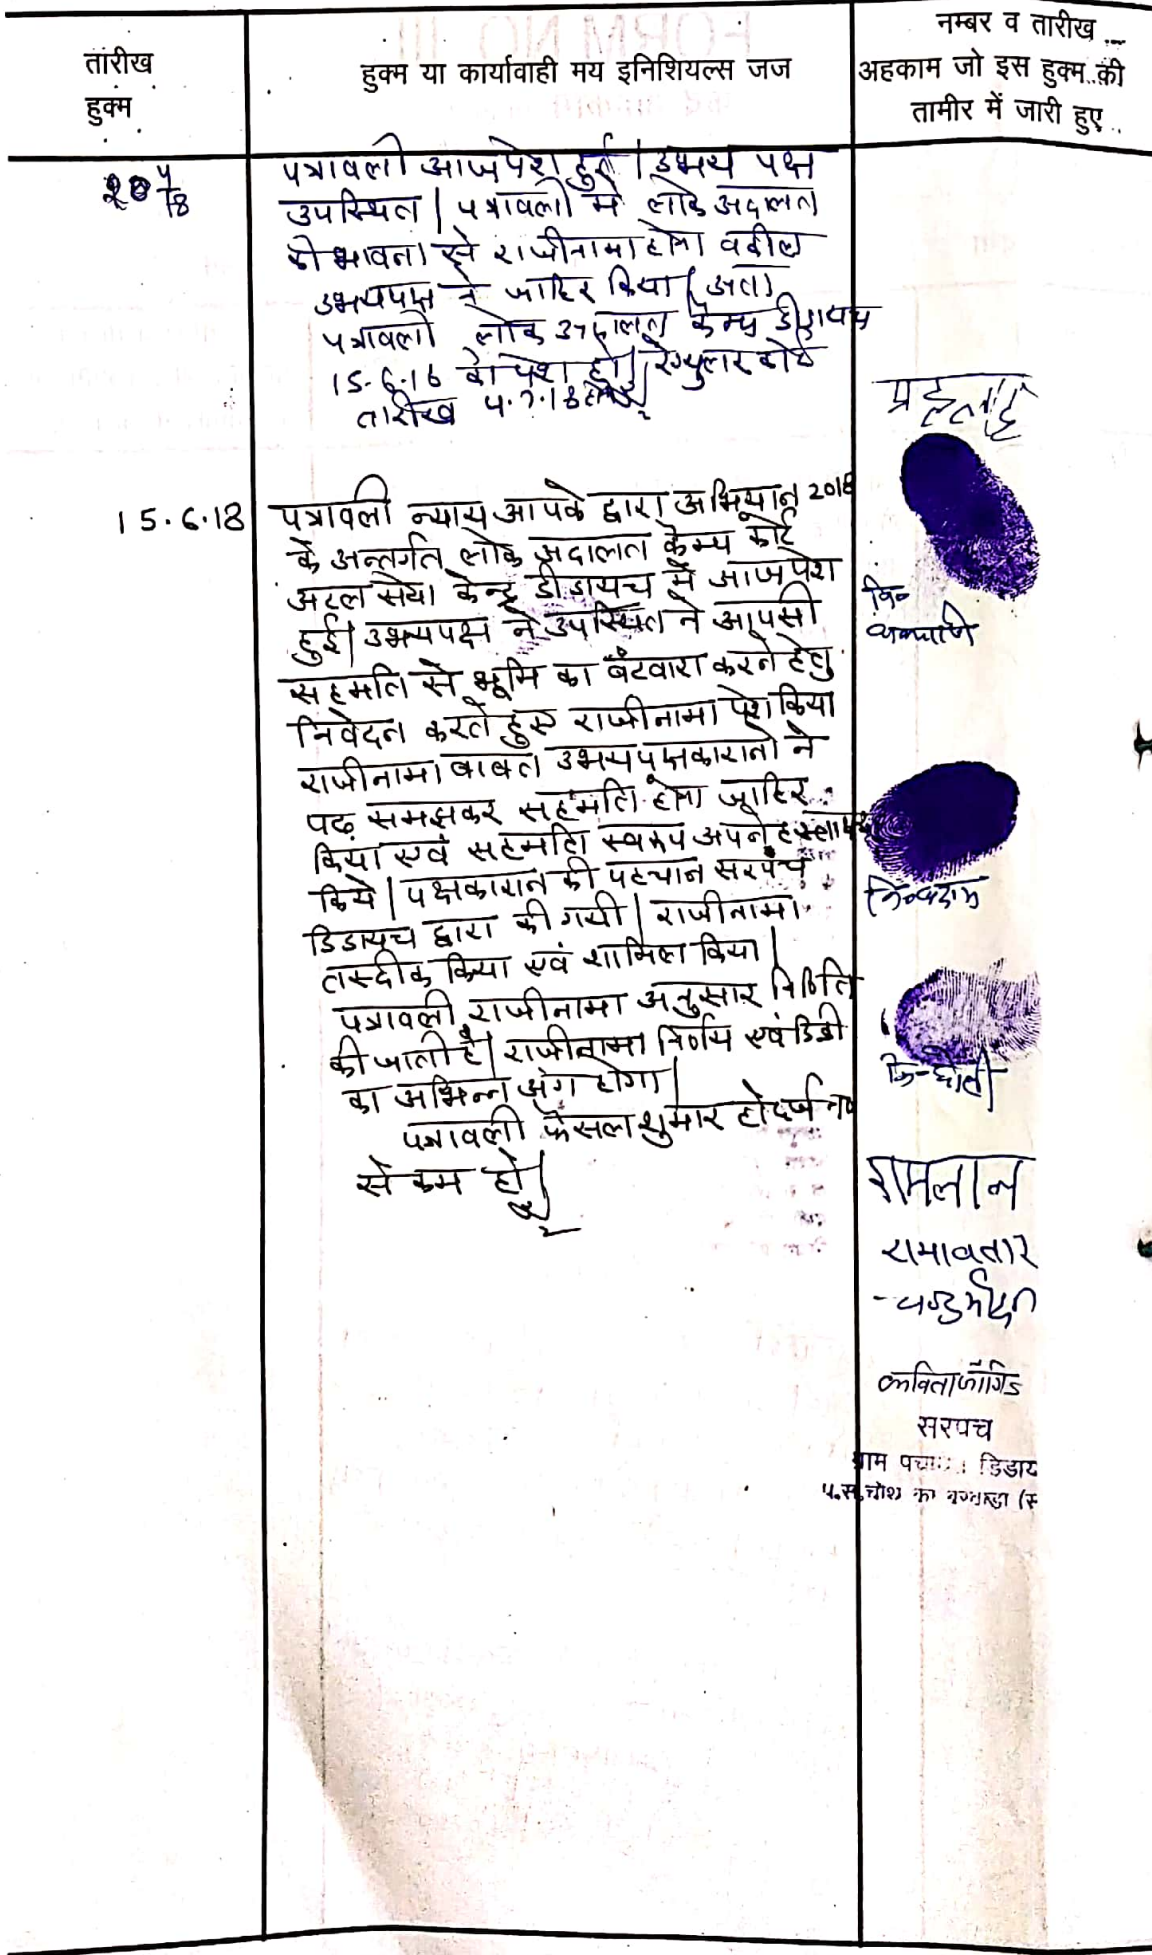 तारीख
हुक्म
हुक्म या कार्यावाही मय इनिशियल्स जज
नम्बर व तारीख
अहकाम जो इस हुक्म की
तामीर में जारी हुए
पत्रावली आज पेश हुई। उभय पक्ष
उपस्थित। पत्रावली में लोक अदालत
की भावना से राजीनामा होना वकील
उभयपक्ष ने जाहिर किया। अतः
पत्रावली लोक अदालत केम्प डीडायच
15.6.18 को पेश हो। रेग्युलर कोर्ट
तारीख 4.7.18
15.6.18
पत्रावली न्याय आपके द्वारा अभियान 2018
के अन्तर्गत लोक अदालत केम्प कोर्ट
अटल सेवा केन्द्र डीडायच में आज पेश
हुई। उभयपक्ष ने उपस्थित ने आपसी
सहमति से भूमि का बँटवारा करने हेतु
निवेदन करते हुए राजीनामा पेश किया
राजीनामा बाबत उभयपक्षकारानो ने
पढ़ समझकर सहमति होना जाहिर
किया एवं सहमति स्वरूप अपने हस्ताक्षर
किये। पक्षकारान की पहचान सरपंच
डिडायच द्वारा की गयी। राजीनामा
तस्दीक किया एवं शामिल किया।
पत्रावली राजीनामा अनुसार निर्णित
की जाती है। राजीनामा निर्णय एवं डिक्री
का अभिन्न अंग होगा।
पत्रावली फैसल शुमार हो दर्ज नं०
से कम हो।
प्रहलाद
रामलाल
रामावतार
कविता जाँगिड
सरपंच
ग्राम डिडाय
का बरवाडा (स